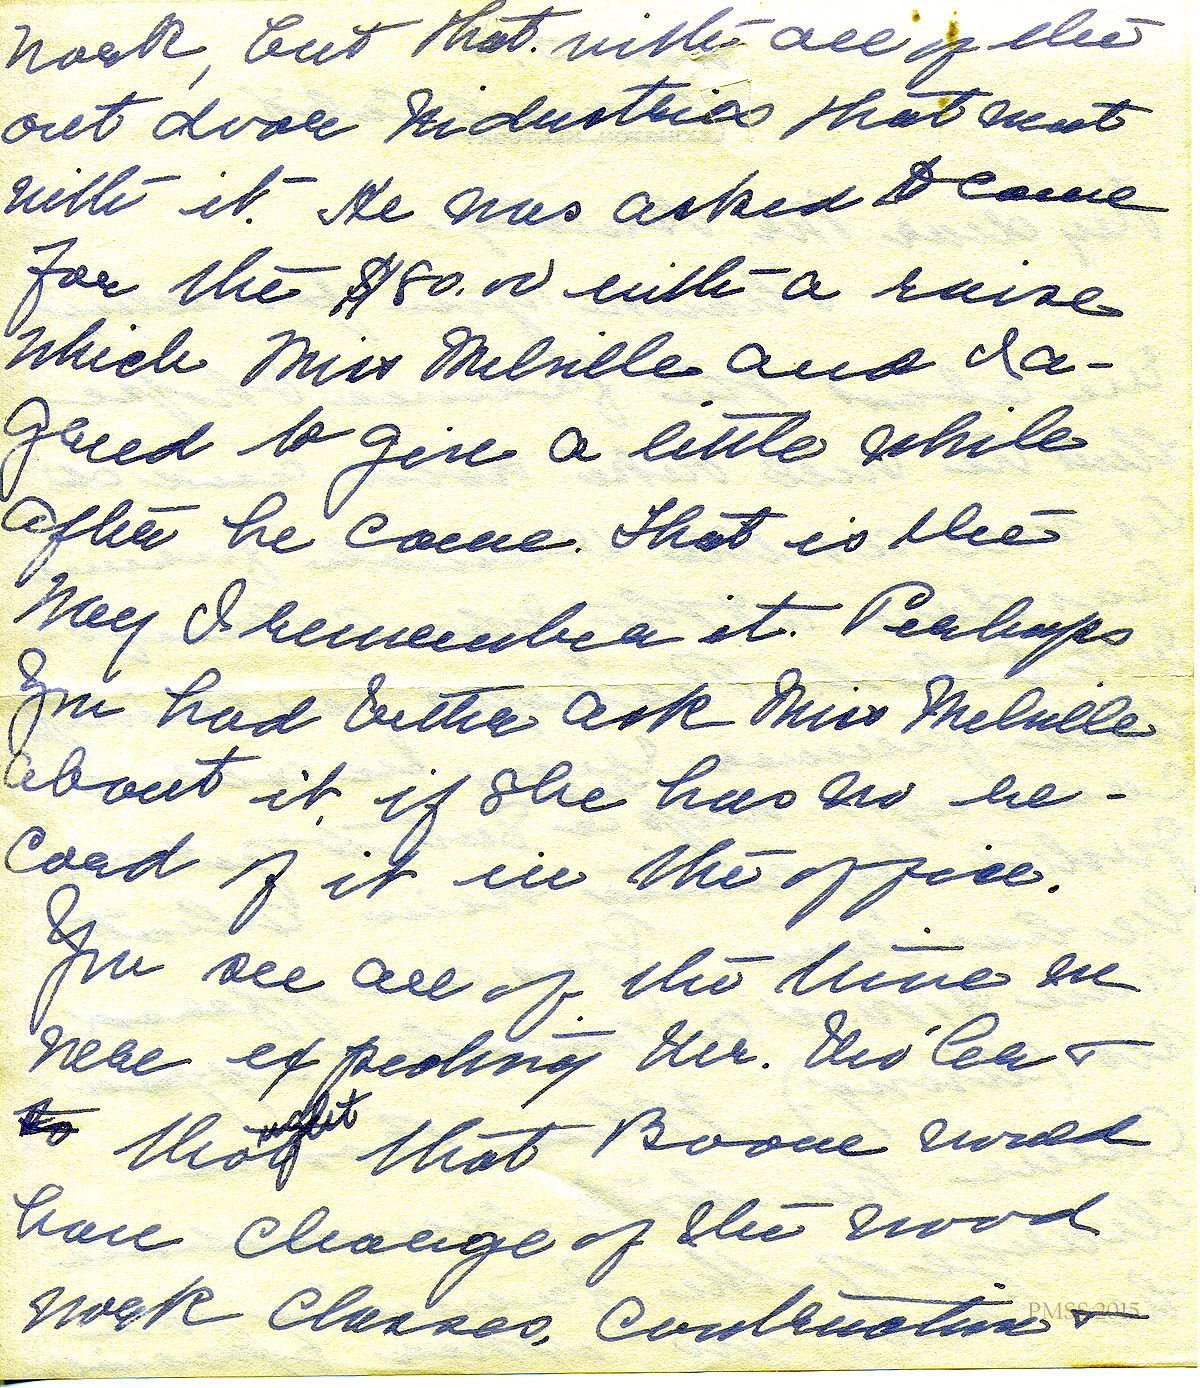 work, but that with all of the
out door industries that went
with it. He was asked to come
for the $80.00 with a raise
which Miss Melville and I a-
greed to give a little while
after he came. That is the
way I remember it. Perhaps
you had better ask Miss Melville
about it, if she has no re-
cord of it in the office.
You see all of the time we
were expecting Mr.
to thought that Boone would
have charge of the wood
work classes, Construction &
PMSS 2015